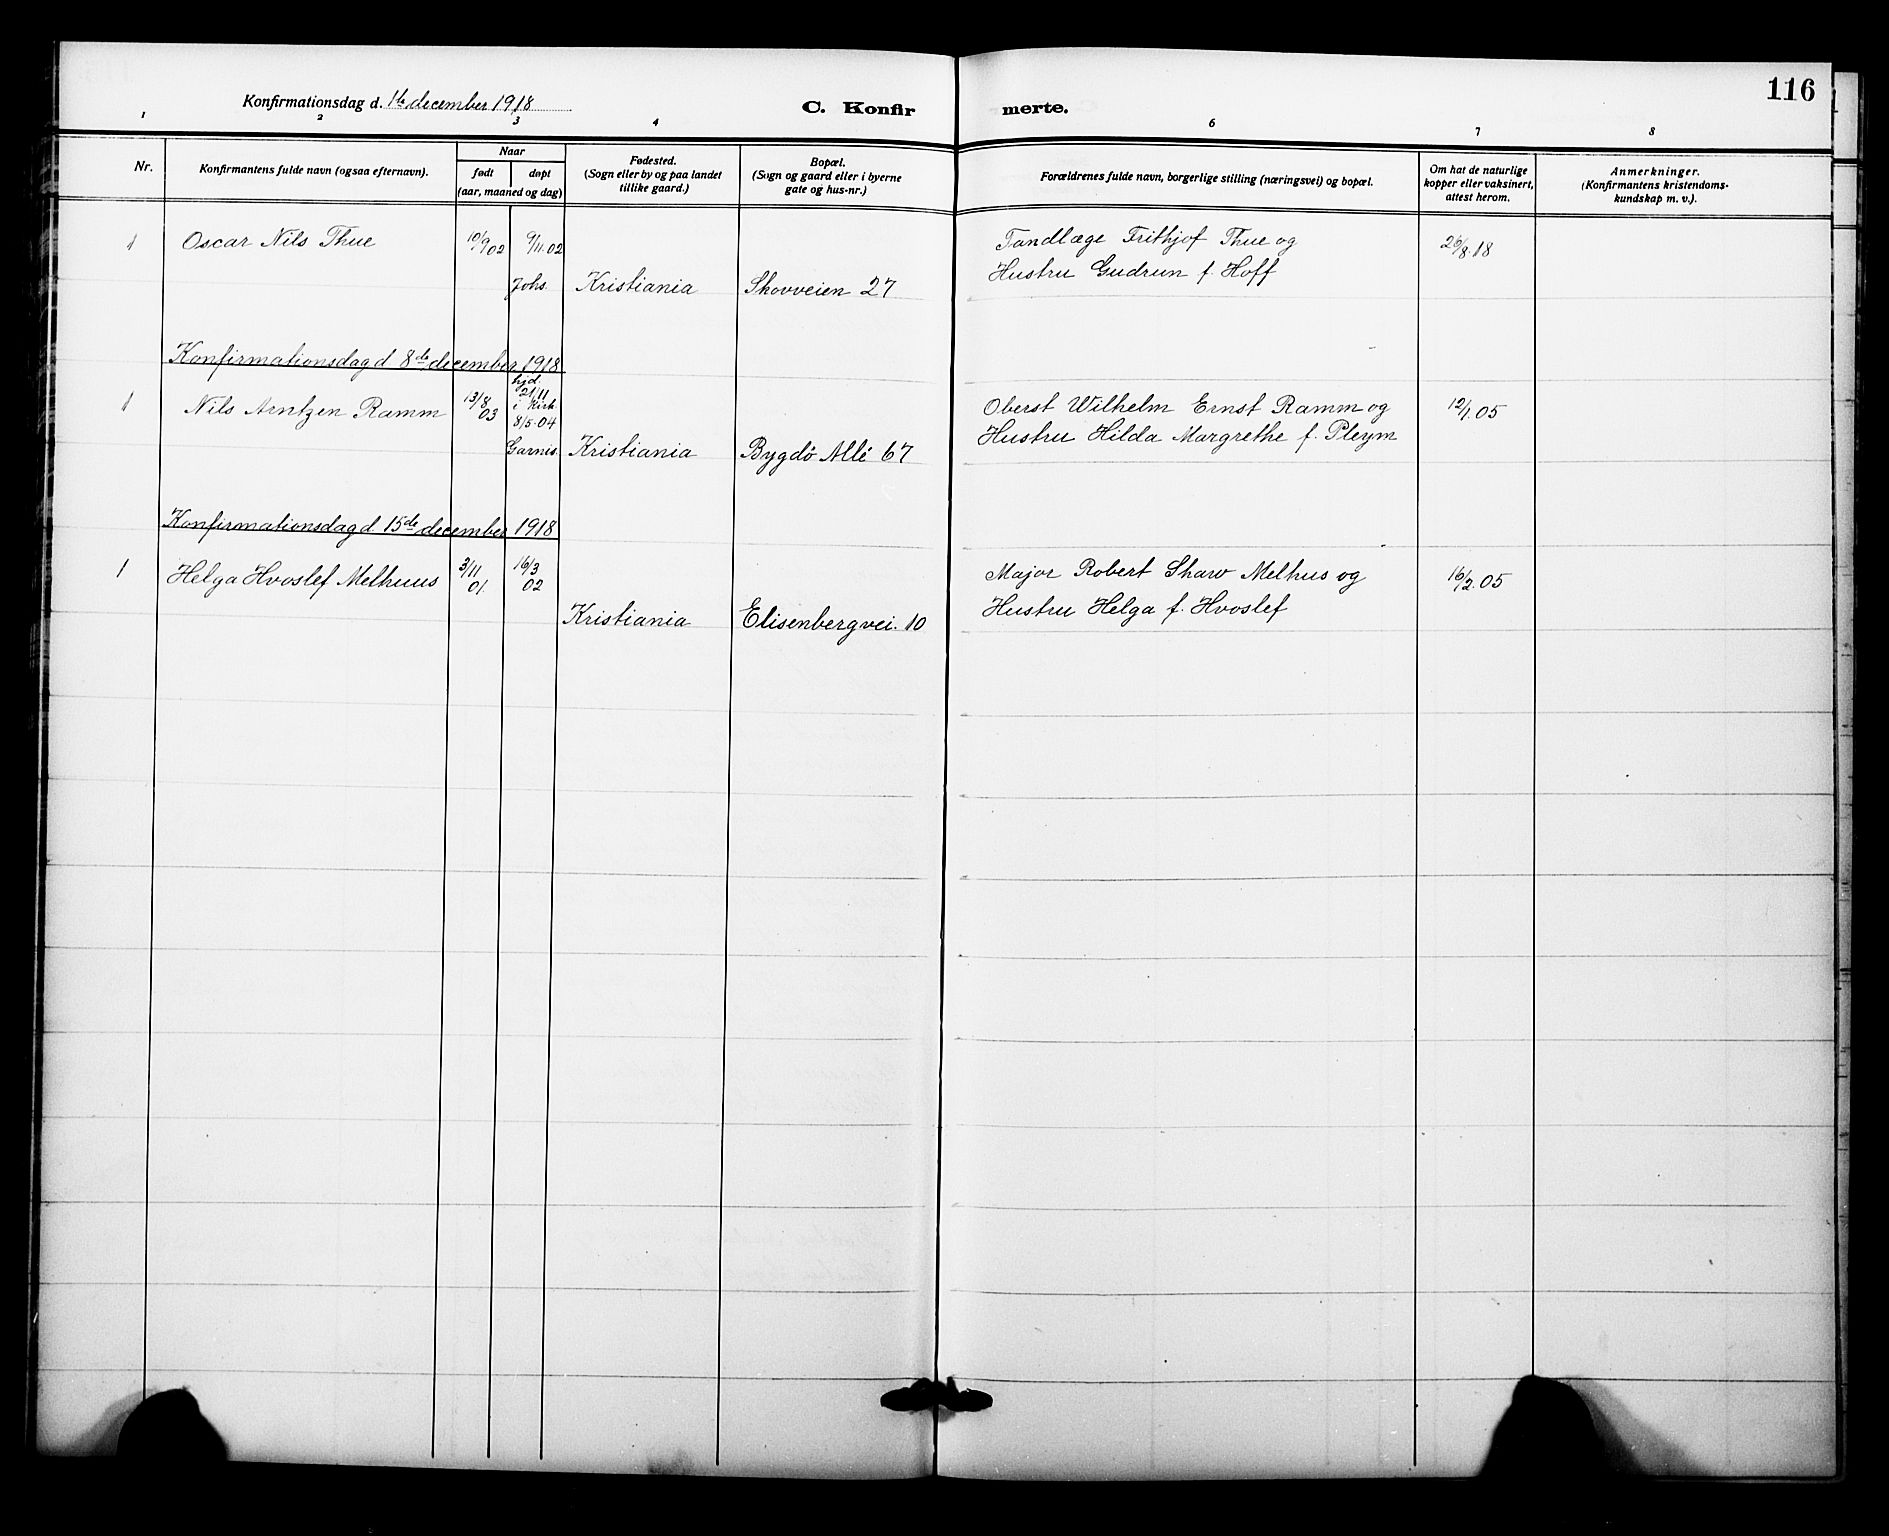 116
Konfirmationsdag d. 1ste december 1918
C. Konfir merte.
1 2 3 4 6 7 8
Nr.
Konfirmantens fulde navn (ogsaa efternavn).
Naar
født
døpt
(aar, maaned og dag)
Fødested.
(Sogn eller by og paa landet
tillike gaard.)
Bopæl.
(Sogn og gaard eller i byerne
gate og hus-nr.)
Forældrenes fulde navn, borgerlige stilling (næringsvei) og bopæl.
Om hat de naturlige
kopper eller vaksinert,
attest herom.
Anmerkninger.
(Konfirmantens kristendoms-
kundskap m. v.).
1 Oscar Nils Thue 10/9 02 9/11.02 Tandlæge Frithjof Thue og 26/8.18
Johs. Kristiania Skovveien 27 Hustru Gudrun f. Hoff
Konfirmationsdag d 8de december 1918
hjd.
21/11
1 Nils Arntzen Ramm 13/8 03 i Kirk. Oberst Wilhelm Ernst Ramm og 12/1.05
8/5.04 Hustru Hilda Margrethe f. Pleym
Garnis. Kristiania Bygdö Allé 67
Konfirmationsdag d. 15de december 1918
1 Helga Hvoslef Melhuus 3/11 01. 16/3 02 Major Robert Shaw Melhus og 16/2.05
Kristiania Elisenbergvei. 10 Hustru Helga f. Hvoslef